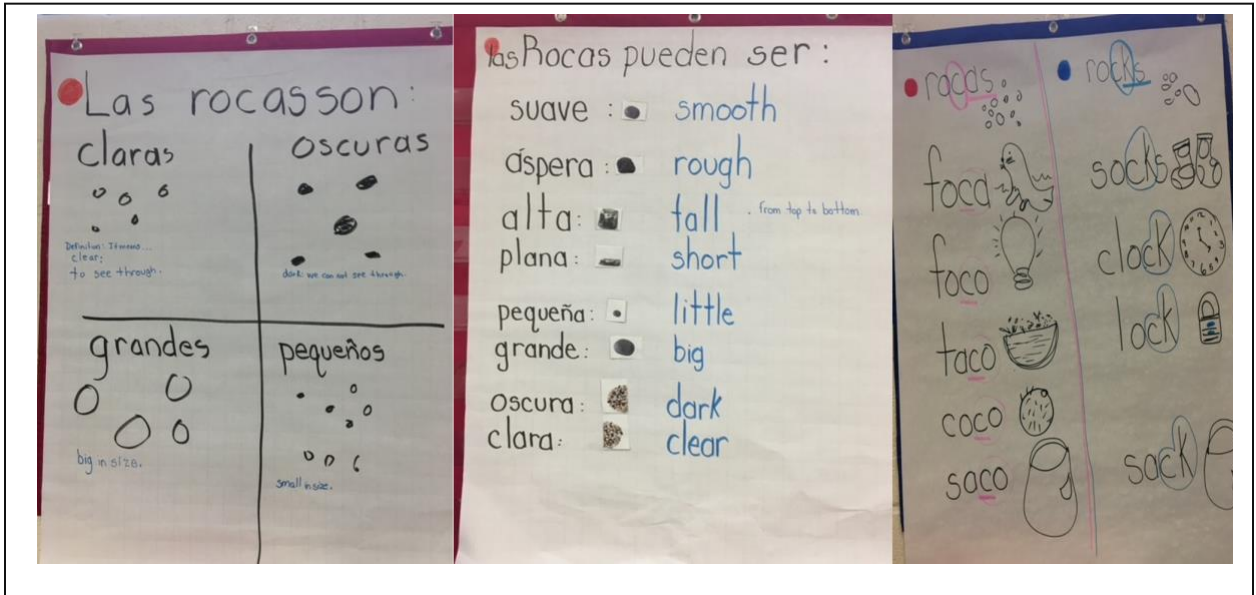 Las rocas son:
claras
oscuras
Definition: It means...
clear;
to see through.
dark: we can not see through.
grandes
pequeños
big in size.
small in size.
las Rocas pueden ser:
suave: smooth
áspera: rough
alta: tall . from top to bottom
plana: short
pequeña: little
grande: big
oscura: dark
clara: clear
rocas
foca
foco
taco
coco
saco
rocks
socks
clock
lock
sack